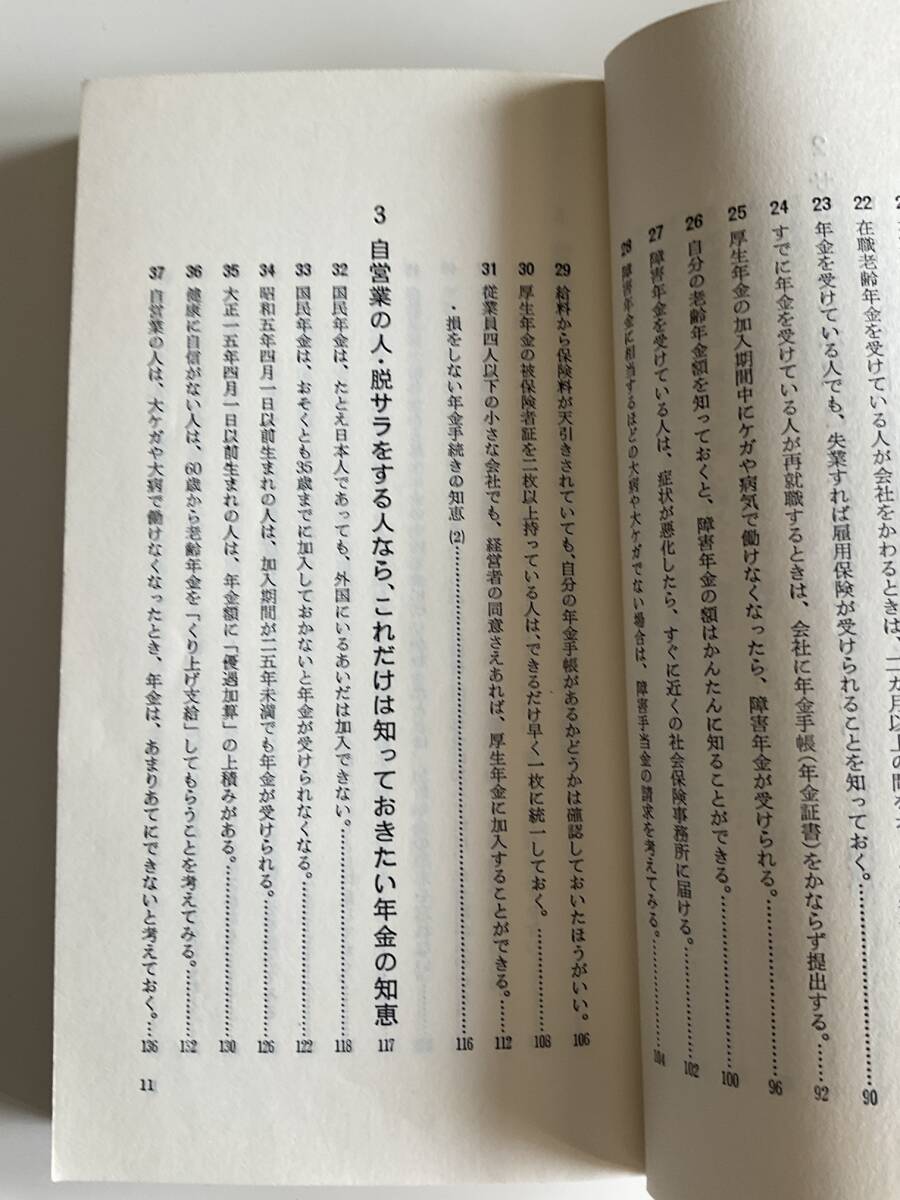 22 在職老齢年金を受けている人が会社をかわるときは、一カ月以上の間を
90
23 年金を受けている人でも、失業すれば雇用保険が受けられることを知っておく。 92
24 すでに年金を受けている人が再就職するときは、会社に年金手帳(年金証書)をかならず提出する。 96
25 厚生年金の加入期間中にケガや病気で働けなくなったら、障害年金が受けられる。 100
26 自分の老齢年金額を知っておくと、障害年金の額はかんたんに知ることができる。 102
27 障害年金を受けている人は、症状が悪化したら、すぐに近くの社会保険事務所に届ける。 104
28 障害年金に相当するほどの大病や大ケガでない場合は、障害手当金の請求を考えてみる。
29 給料から保険料が天引きされていても、自分の年金手帳があるかどうかは確認しておいたほうがいい。 106
30 厚生年金の被保険者証を二枚以上持っている人は、できるだけ早く一枚に統一しておく。 108
31 従業員四人以下の小さな会社でも、経営者の同意さえあれば、厚生年金に加入することができる。 112
・損をしない年金手続きの知恵(2) 116
3 自営業の人・脱サラをする人なら、これだけは知っておきたい年金の知恵 117
32 国民年金は、たとえ日本人であっても、外国にいるあいだは加入できない。 118
33 国民年金は、おそくとも35歳までに加入しておかないと年金が受けられなくなる。 122
34 昭和五年四月一日以前生まれの人は、加入期間が二五年未満でも年金が受けられる。 126
35 大正一五年四月一日以前生まれの人は、年金額に「優遇加算」の上積みがある。 130
36 健康に自信がない人は、60歳から老齢年金を「くり上げ支給」してもらうことを考えてみる。 132
37 自営業の人は、大ケガや大病で働けなくなったとき、年金は、あまりあてにできないと考えておく。 136
11